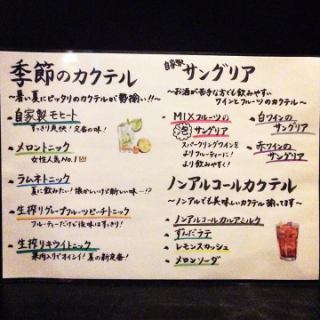 季節のカクテル
～暑い夏にピッタリのカクテルが勢揃い!!～
自家製モヒート
すっきり爽快！定番の味！
メロントニック
女性人気No.1
ラムネトニック
夏に飲みたい！懐かしいけど新しい味…!?
生搾りグレープフルーツピーチトニック
フルーティーだけど後味はすっきり！
生搾りキウイトニック
果肉入りでオイシイ！夏の新定番！
自家製 サングリア
～お酒が苦手な方でも飲みやすい
ワインとフルーツのカクテル～
MIXフルーツの
泡 サングリア
スパークリングワインを
よりフルーティーに！
より飲みやすく！
白ワインの
サングリア
赤ワインの
サングリア
ノンアルコールカクテル
～ノンアルでも美味しいカクテル揃ってます～
ノンアルコールカルアミルク
ずんだラテ
レモンスカッシュ
メロンソーダ